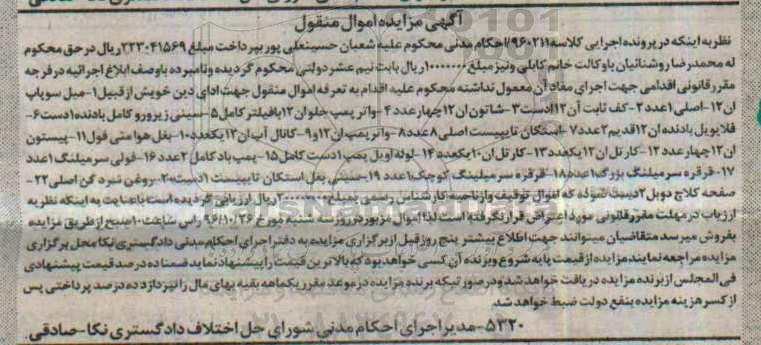 آگهی مزایده اموال منقول
نظر به اینکه در پرونده اجرایی کلاسه ۹۶۰۲۱۱/احکام مدنی محکوم علیه شعبان حسینعلی پور بپرداخت مبلغ ۲۲۳۰۴۱۵۶۹ ریال در حق محکوم
له محمدرضا روشنائیان با وکالت خانم کابلی و نیز مبلغ ۱۰۰۰۰۰۰ ریال بابت نیم عشر دولتی محکوم گردیده و نامبرده با وصف ابلاغ اجرائیه در فرجه
مقرر قانونی اقدامی جهت اجرای مفاد آن معمول نداشته محکوم علیه اقدام به تعرفه اموال منقول جهت ادای دین خویش از قبیل ۱-میل سوپاپ
ان۱۲-اصلی۱عدد۲-کف تابت آن۱۲ادست۳-شاتون ان۱۲چهار عدد۴-واتر پمپ جلوان۱۲بافیلتر کامل۵-سینی زیر و رو کامل بادنده۱دست۶-
فلایویل بادنده ان۱۲قدیم۲عدد۷-استکان تایپیست اصلی۸عدد۸-واتر پمپ ان۱۲و۹-کانال آب ان۱۲یکعدد۱۰-بغل هوا منی فول۱۱-پیستون
ان۱۲چهار عدد۱۲-کارتل ان۱۲یکعدد۱۳-کارتل ان۱۰یکعدد۱۴-لوله اویل پمپ۱دست کامل۱۵-پمپ باد کامل۲عدد۱۶-فولی سر میلنگ۱عدد
۱۷-قرقره سر میلینگ بزرگ۱عدد۱۸-قرقره سر میلینگ کوچک۱عدد۱۹-سینی بغل استکان تایپیست۱دست۲۰-روغن سرد کن اصلی۲۲-
صفحه کلاج دوبل۲دست نموده که اموال توقیف و از ناحیه کارشناس رسمی بمبلغ ریال ارزیابی گردیده است با عنایت به اینکه نظریه
ارزیاب در مهلت مقرر قانونی مورد اعتراض قرار نگرفته است لذا اموال مزبور در روز سه شنبه مورخ ۹۶/۱۰/۲۶ راس ساعت ۱۰صبح از طریق مزایده
بفروش میرسد متقاضیان میتوانند جهت اطلاع بیشتر پنج روز قبل از برگزاری مزایده به دفتر اجرای احکام مدنی دادگستری نکا محل برگزاری
مزایده مراجعه نمایند مزایده از قیمت پایه شروع و برنده آن کسی خواهد بود که بالاترین قیمت را پیشنهاد نماید ضمنا ده درصد قیمت پیشنهادی
فی المجلس از برنده مزایده دریافت خواهد شد و در صورتیکه برنده مزایده در موعد مقرر یکماهه بقیه بهای مال را نپردازد ده درصد پرداختی پس
از کسر هزینه مزایده بنفع دولت ضبط خواهد شد.
۵۳۲۰-مدیر اجرای احکام مدنی شورای حل اختلاف دادگستری نکا-صادقی